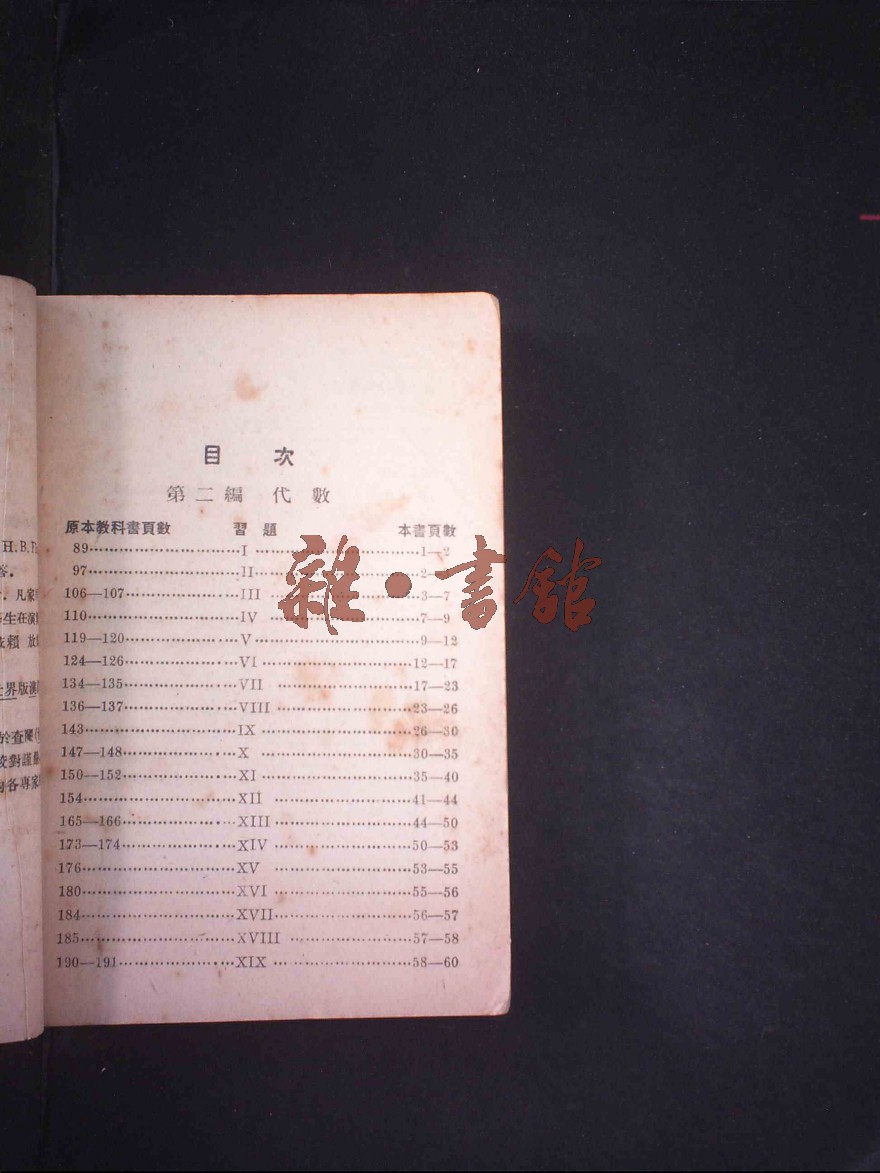 目 次
第二編 代數
原本教科書頁數 習題 本書頁數
89 I 1—2
97 II 2
106—107 III 3—7
110 IV 7—9
119—120 V 9—12
124—126 VI 12—17
134—135 VII 17—23
136—137 VIII 23—26
143 IX 26—30
147—148 X 30—35
150—152 XI 35—40
154 XII 41—44
165—166 XIII 44—50
173—174 XIV 50—53
176 XV 53—55
180 XVI 55—56
184 XVII 56—57
185 XVIII 57—58
190—191 XIX 58—60
雜·書館
H.B.
凡家
生在演
依賴 放
世界版演
於查閱
校對謹嚴
各專家